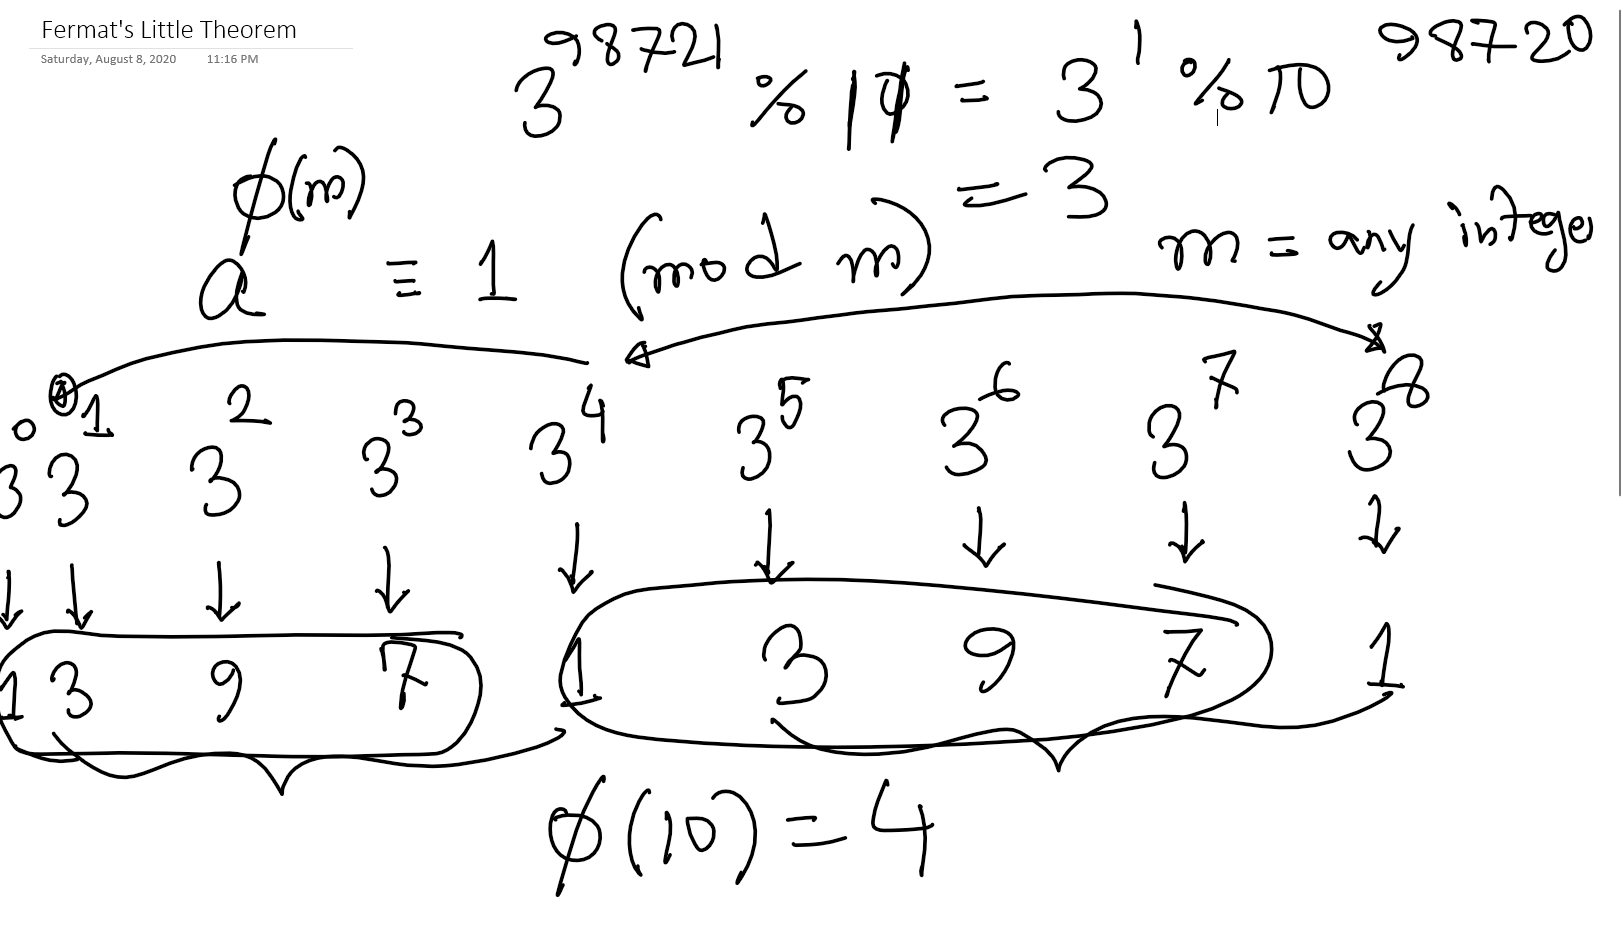 Fermat's Little Theorem
Saturday, August 8, 2020 11:16 PM
3^98721 % 10 = 3^1 % 10 98720
= 3
a^ϕ(m) ≡ 1 (mod m) m = any integer
3^0 3^1 3^2 3^3 3^4 3^5 3^6 3^7 3^8
1 3 9 7 1 3 9 7 1
ϕ(10) = 4